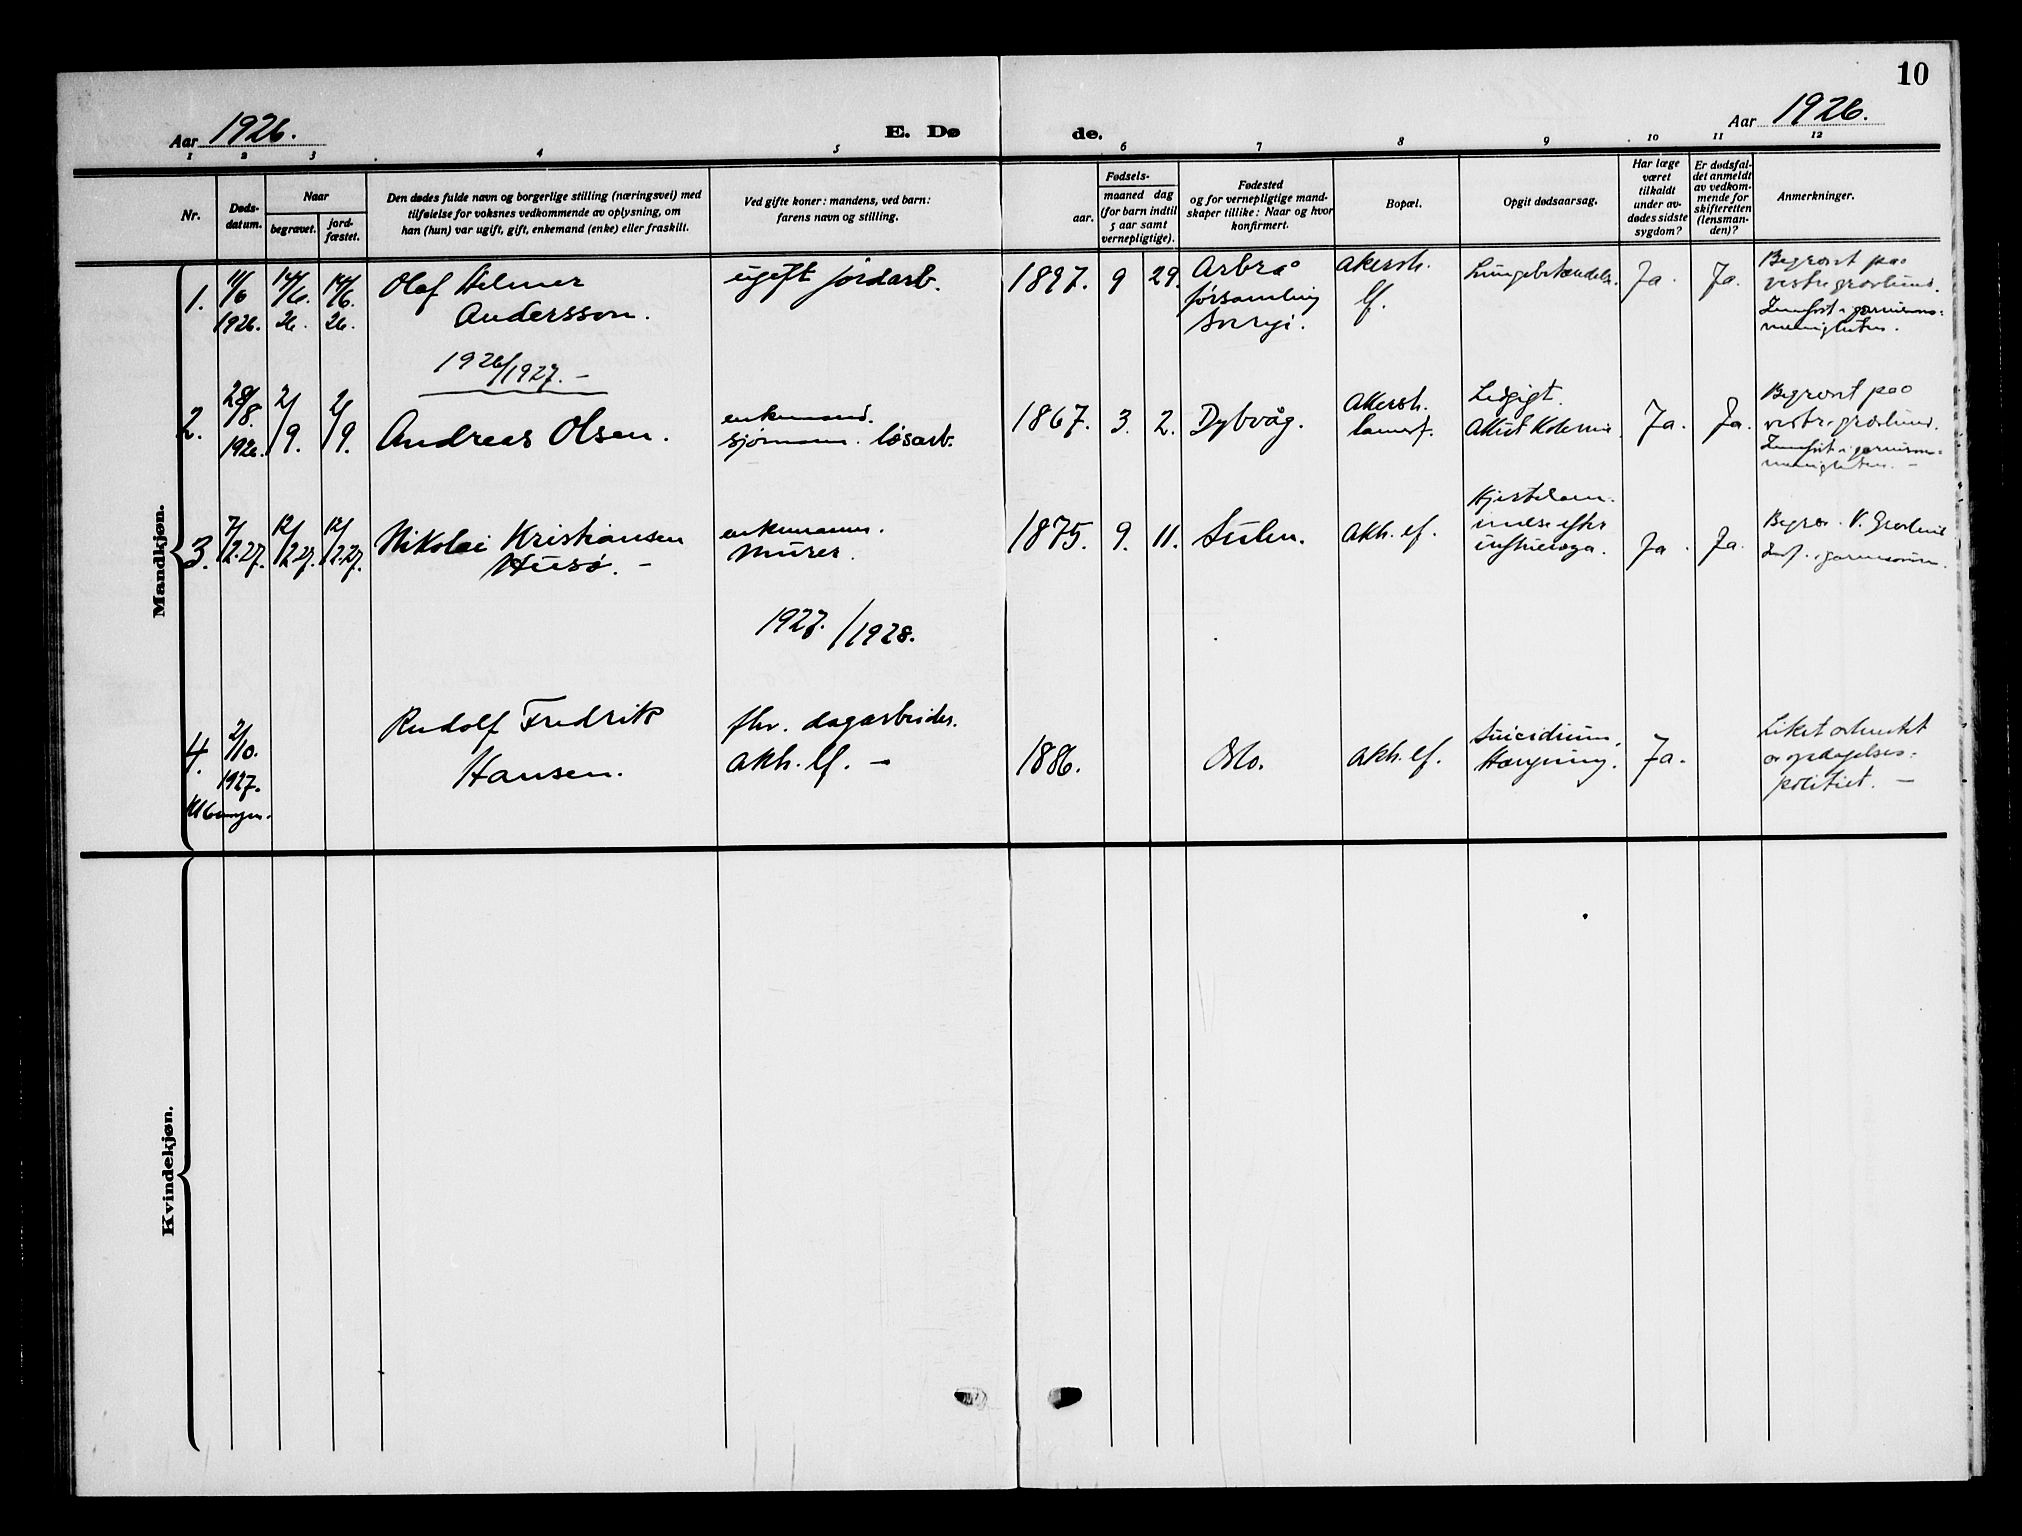 10
Aar 1926.
E. Døde.
Aar 1926.
1 2 3 4 5 6 7 8 9 10 11 12
Nr.
Døds-
datum.
Naar
begravet.
jord-
fæstet.
Den dødes fulde navn og borgerlige stilling (næringsvei) med
tilføielse for voksnes vedkommende av oplysning, om
han (hun) var ugift, gift, enkemand (enke) eller fraskilt.
Ved gifte koner: mandens, ved barn:
farens navn og stilling.
Fødsels-
aar.
maaned dag
(for barn indtil
5 aar samt
vernepligtige).
Fødested
og for vernepligtige mand-
skaper tillike: Naar og hvor
konfirmert.
Bopæl.
Opgit dødsaarsag.
Har læge
været
tilkaldt
under av-
dødes sidste
sygdom?
Er dødsfal-
det anmeldt
av vedkom-
mende for
skifteretten
(lensman-
den)?
Anmerkninger.
Mandkjøn.
1.
11/6
1926.
14/6.
26.
14/6.
26.
Olaf Helmer
Andersson.
ugift jordarb.
1897.
9
29.
Arbrå
församling
Sverge.
Akersh.
lf.
Lungebetændelse.
Ja.
Ja.
Begravet paa
vestre gravlund.
Innført i garnisons=
menigheten.
1926/1927. –
2.
28/8.
1926.
2/9.
2/9.
Andreas Olsen.
enkemand.
sjømann. løsarb.
1867.
3.
2.
Dybvåg.
Akersh.
landsf.
Ledgigt.
Ja.
Ja.
Begravet paa
vestre gravlund.
Innført i garnisons=
menigheten. –
3.
7/12.27.
12/12.27.
12/12.27.
Nikolai Kristiansen
Husø. –
enkemann.
murer.
1875.
9.
11.
Sulen.
Akh. lf.
Hjertelam-
melse efter
influensa.
Ja.
Ja.
Begrav. V. Gravlund
Innf. i garnisonen.
1927./1928.
4.
2/10.
1927.
Rudolf Fredrik
Hansen.
fhv. dagarbeider.
Akh. lf. –
1886.
Oslo.
Akh. lf.
Suicidium,
Hængning.
Ja.
Liket avhentet
av opdagelses=
politiet. –
Kvindekjøn.